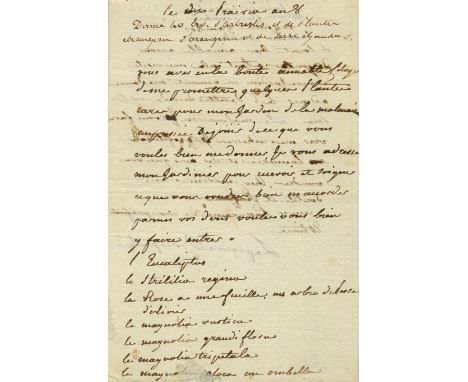 le Prairial an 8
Donné 40 d'arbustes et de Plantes
étrangères d'orangerie et de serre chaudes
vous aves eu la bonté
de me promettre quelques Plante
rares pour mon Jardin de la malmaison
de ce que vous
voules bien me donner Je vous adresse
mon Jardinier pour recevoir et soigner
ce que vous voudres bien m accorder
parmis vos dons voules vous bien
y faire entrer
l Eucaliptus
le Strélitia regina
la Rose a une feuille, un arbre de
d'olivier
le magnolia rustica
le magnolia grandiflora
le magnolia tripetala
le magnolia ou ombella